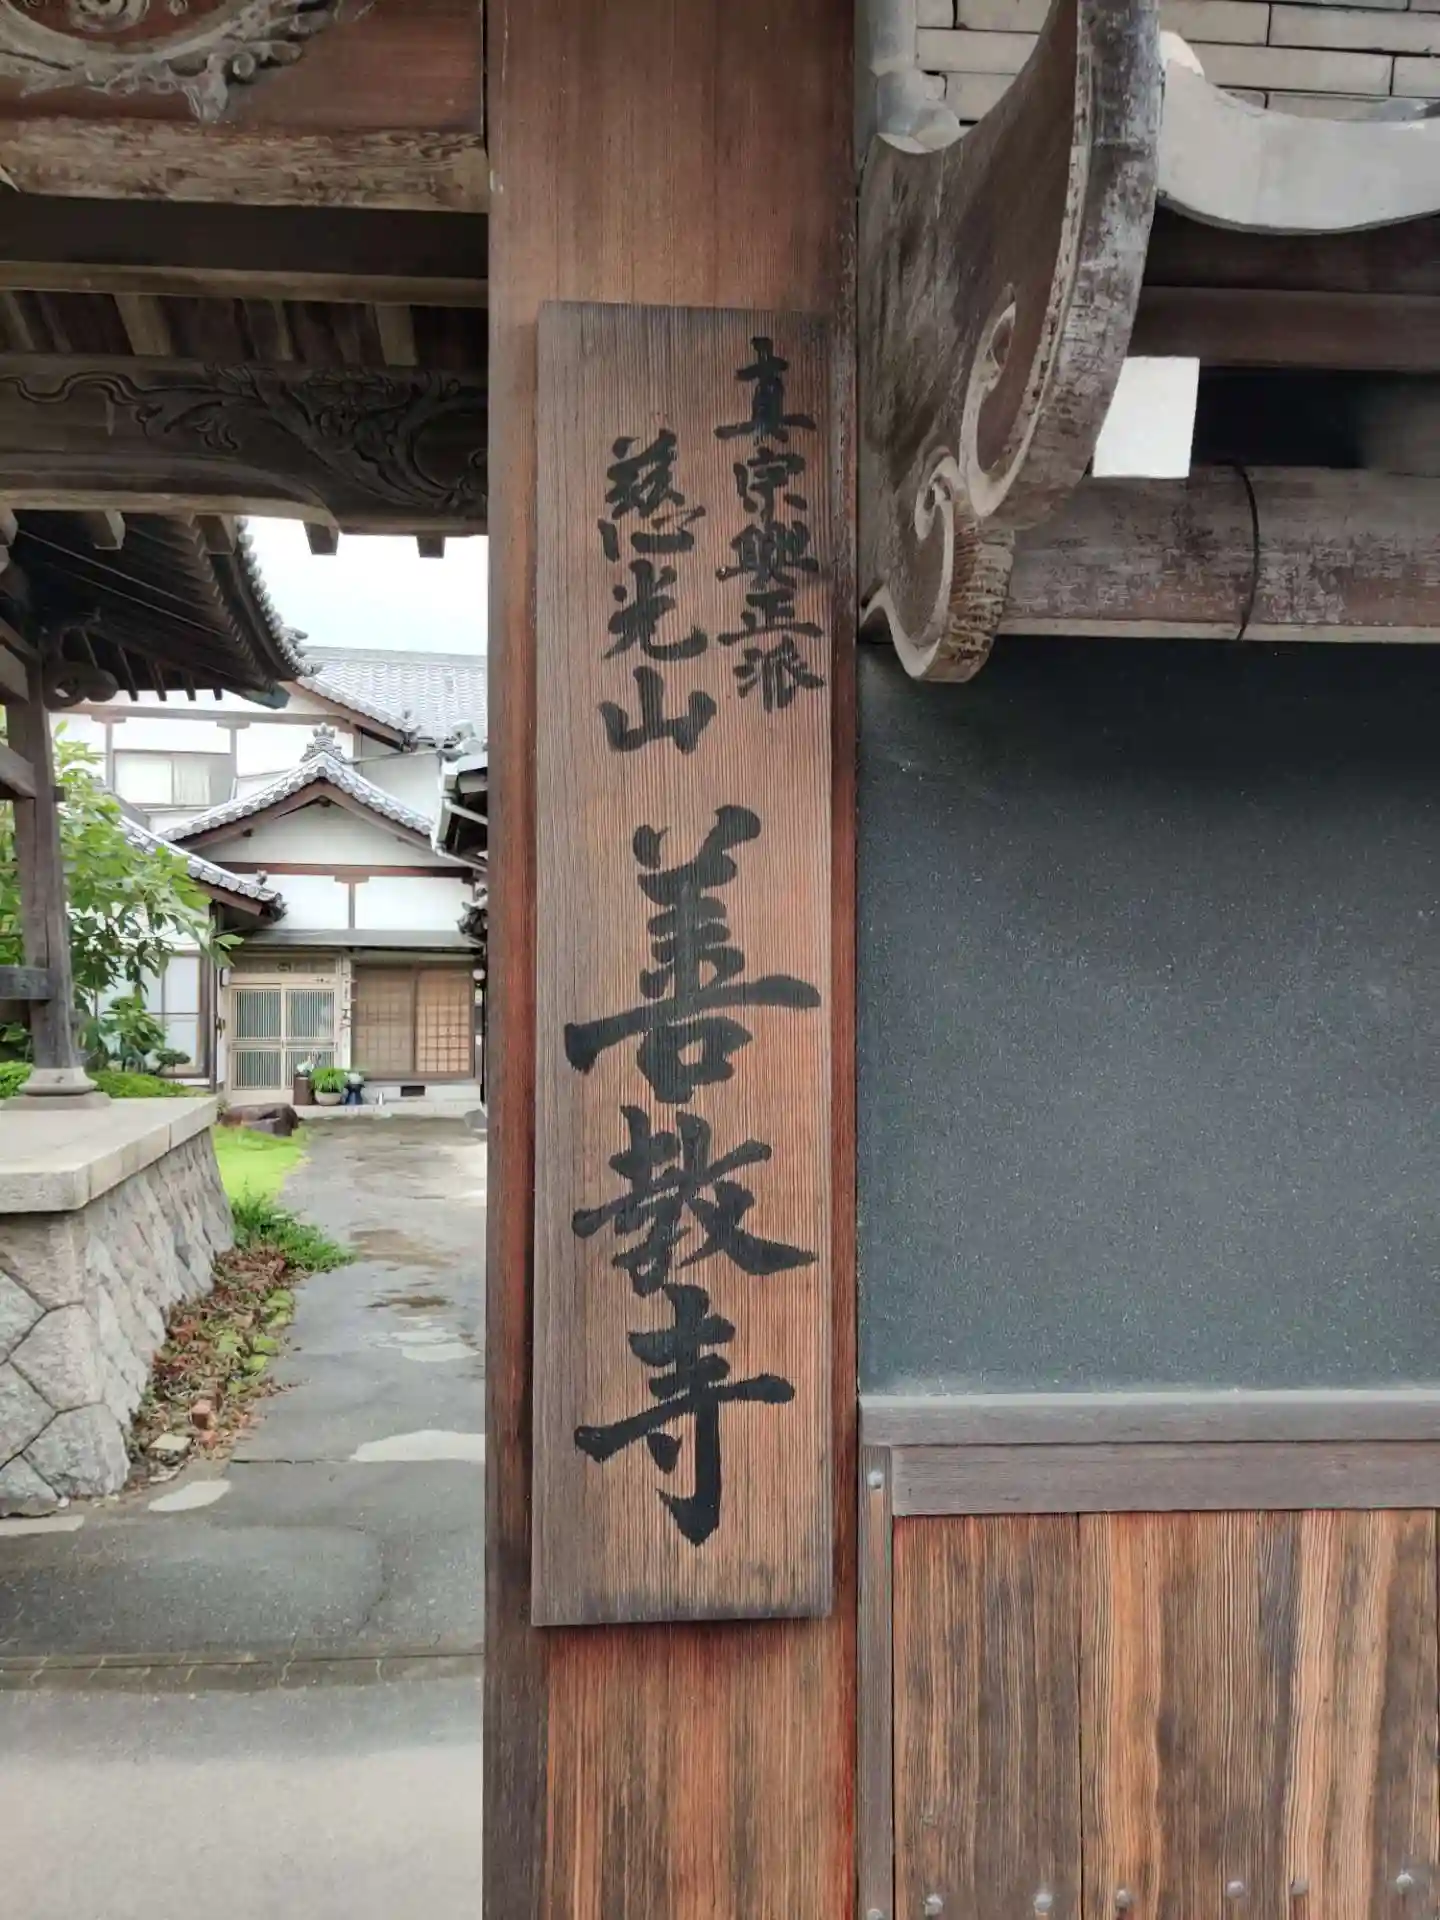 真宗興正派
慈光山
善教寺